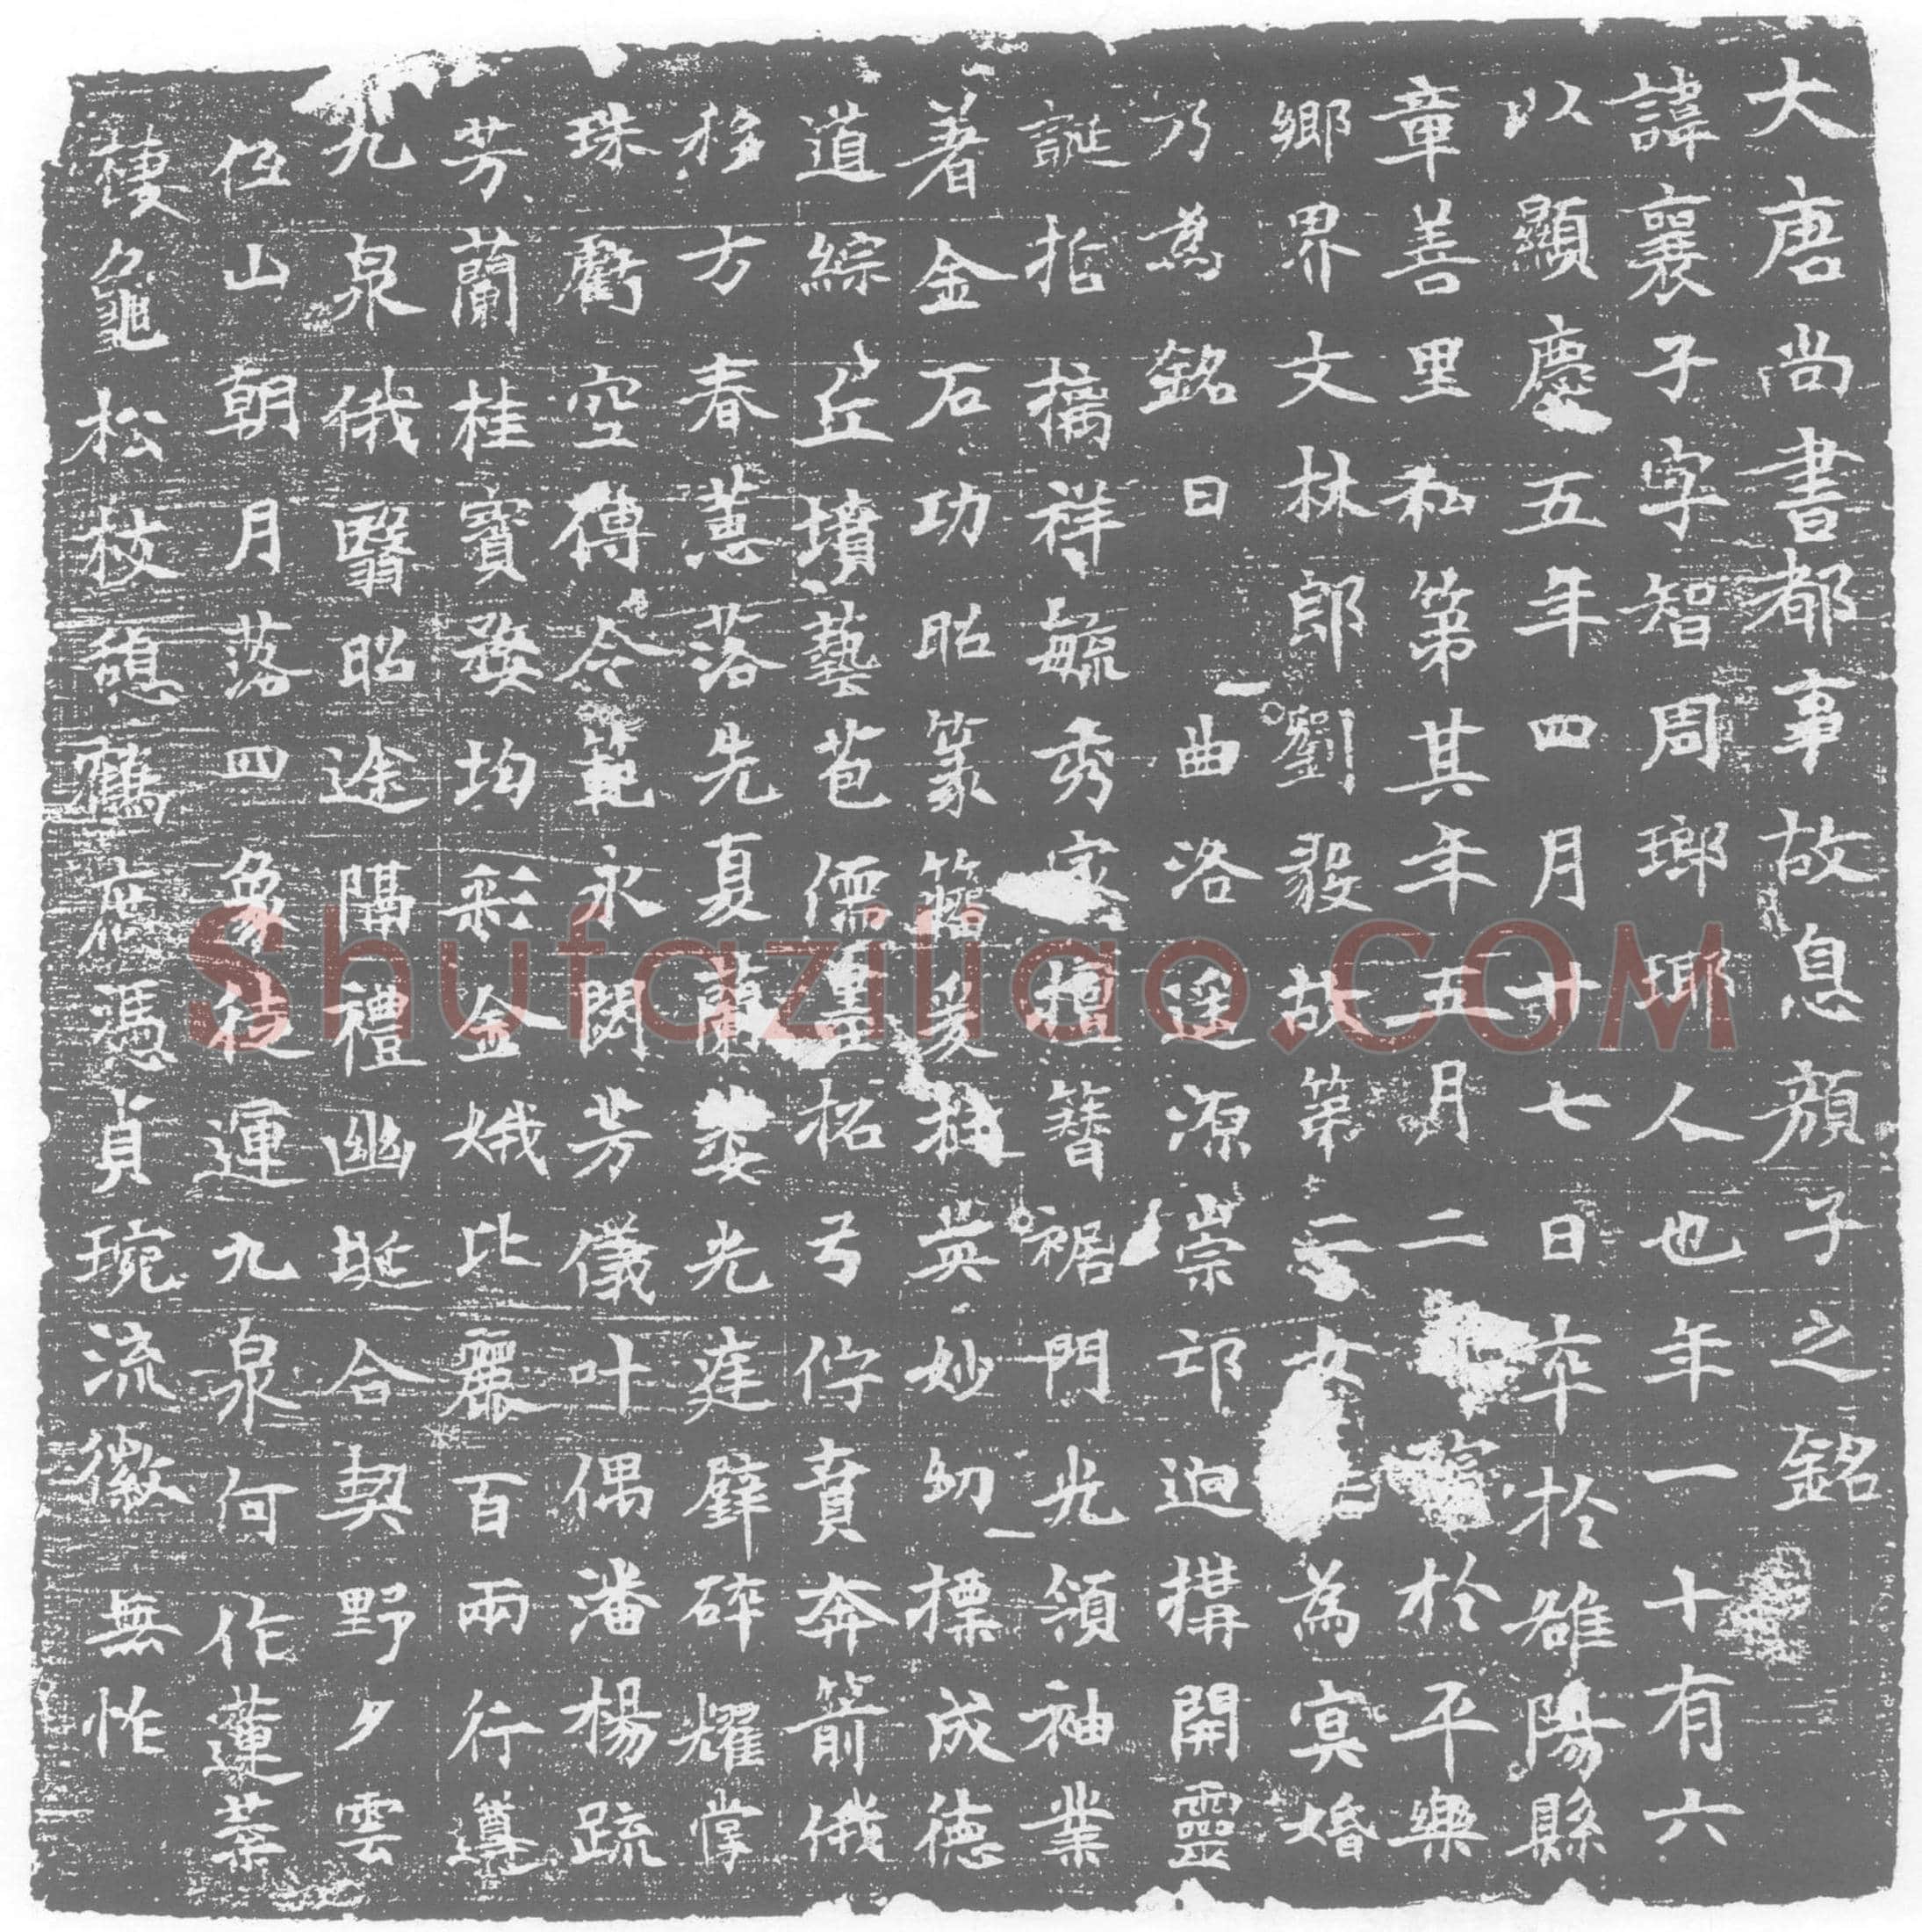 大唐尚書都事故息顏子之銘
諱襄子字智周瑯琊人也年一十有六
以顯慶五年四月廿七日卒於雒陽縣
章善里私第其年五月二於平樂
鄉界文林郎劉毅故第二女為冥婚
乃為銘曰曲洛遥源崇邙迥搆開靈
誕指摛祥毓秀家擅簪裾門光領袖業
著金石功昭篆籀爰挺英妙幼摽成德
道綜丘墳藝苞儒墨柘弓佇賁奔箭俄
移方春蕙落先夏蘭萎光莛碎耀掌
珠虧空傳令範永閟芳儀叶偶潘楊疏
芳蘭桂寶婺均彩金娥比麗百兩行遵
九泉俄翳昭途隔禮幽埏合契野夕雲
低山朝月落四象徒運九泉何作蓮葉
棲龜松枝憩鶴庶憑貞琬流徽無怍
Shufaziliao.COM